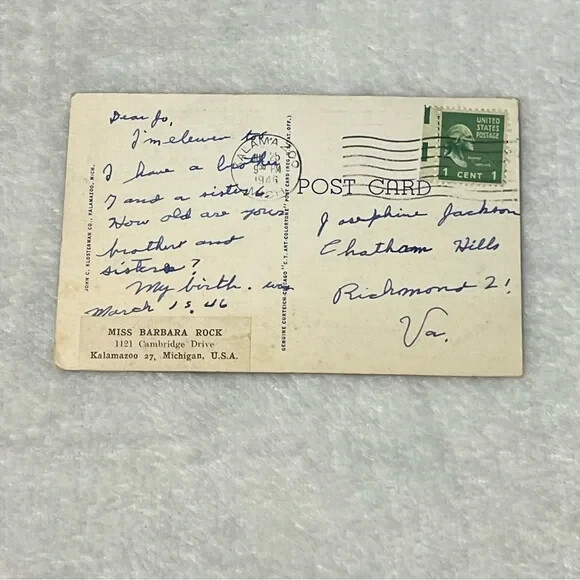 Dear Jo,
I'm eleven too.
I have a brother
7 and a sister 6.
How old are your
brother and
sisters?
My birth. was
March 15, 46
MISS BARBARA ROCK
1121 Cambridge Drive
Kalamazoo 27, Michigan, U.S.A.
JOHN C. KLOSTERMAN CO., KALAMAZOO, MICH.
GENUINE CURTEICH-CHICAGO "C.T. ART-COLORTONE" POST CARD (REG. U.S. PAT. OFF.)
KALAMAZOO
1946
POST CARD
UNITED
STATES
POSTAGE
1 CENT 1
Josephine Jackson
Chatham Hills
Richmond 21
Va.